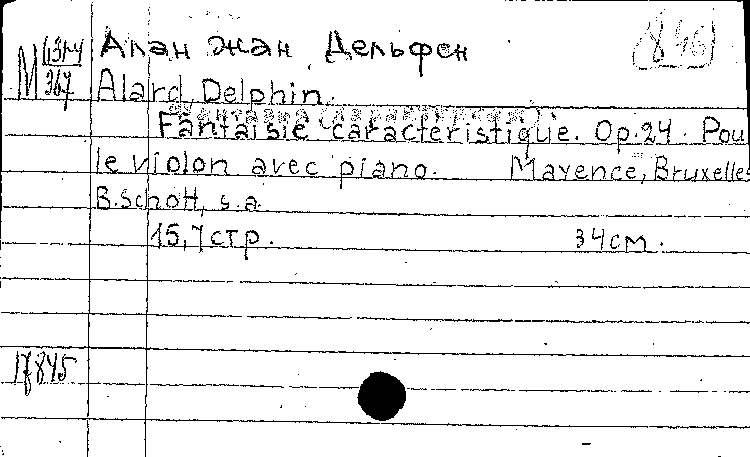 Алан Жан Дельфен
846
M 1374/367
Alard, Delphin.
Fantaisie caractéristique. Op. 24. Pou
le violon avec piano. Mayence, Bruxelles
B. Schott, s.a.
15, 7 стр. 34 см.
17845